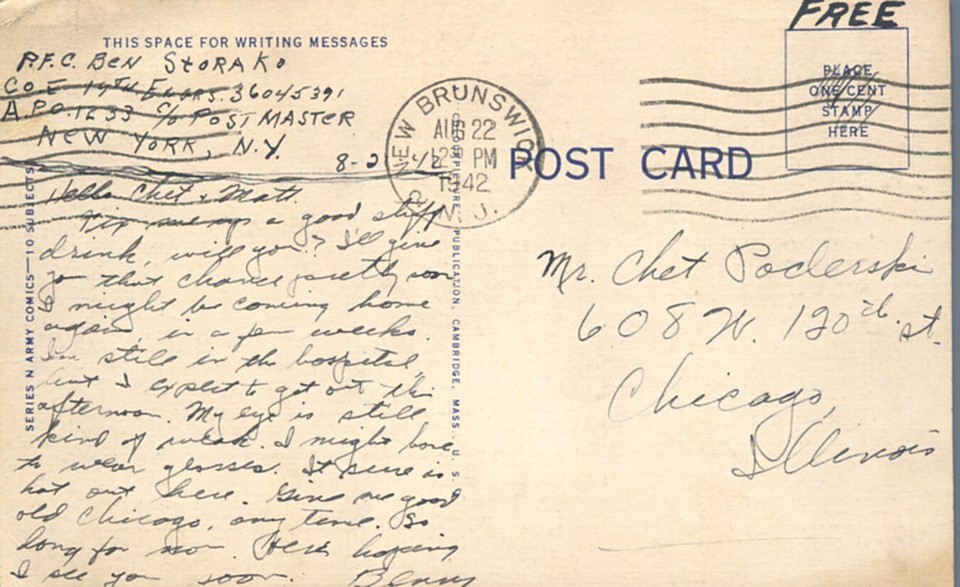 FREE
THIS SPACE FOR WRITING MESSAGES
P.F.C. BEN STORAKO
CO E 19TH ENGRS. 36045391
A.P.O. 1633 C/O POSTMASTER
NEW YORK, N.Y.
8-2
NEW BRUNSWICK
AUG 22
12 30 PM
1942
N. J.
PLACE
ONE CENT
STAMP
HERE
POST CARD
Hello Chet + Matt.
Fix me up a good stiff
drink, will you? I'll give
you that chance pretty soon
I might be coming home
again in a few weeks.
I'm still in the hospital,
but I expect to get out this
afternoon. My eye is still
kind of weak. I might have
to wear glasses. It sure is
hot out here. Give me good
old Chicago, any time. So
long for now. Here's hoping
I see you soon. Benny
Mr. Chet Poderski
608 W. 120th. st.
Chicago,
Illinois
SERIES N ARMY COMICS—10 SUBJECTS
PUBLICATION, CAMBRIDGE, MASS. U. S.